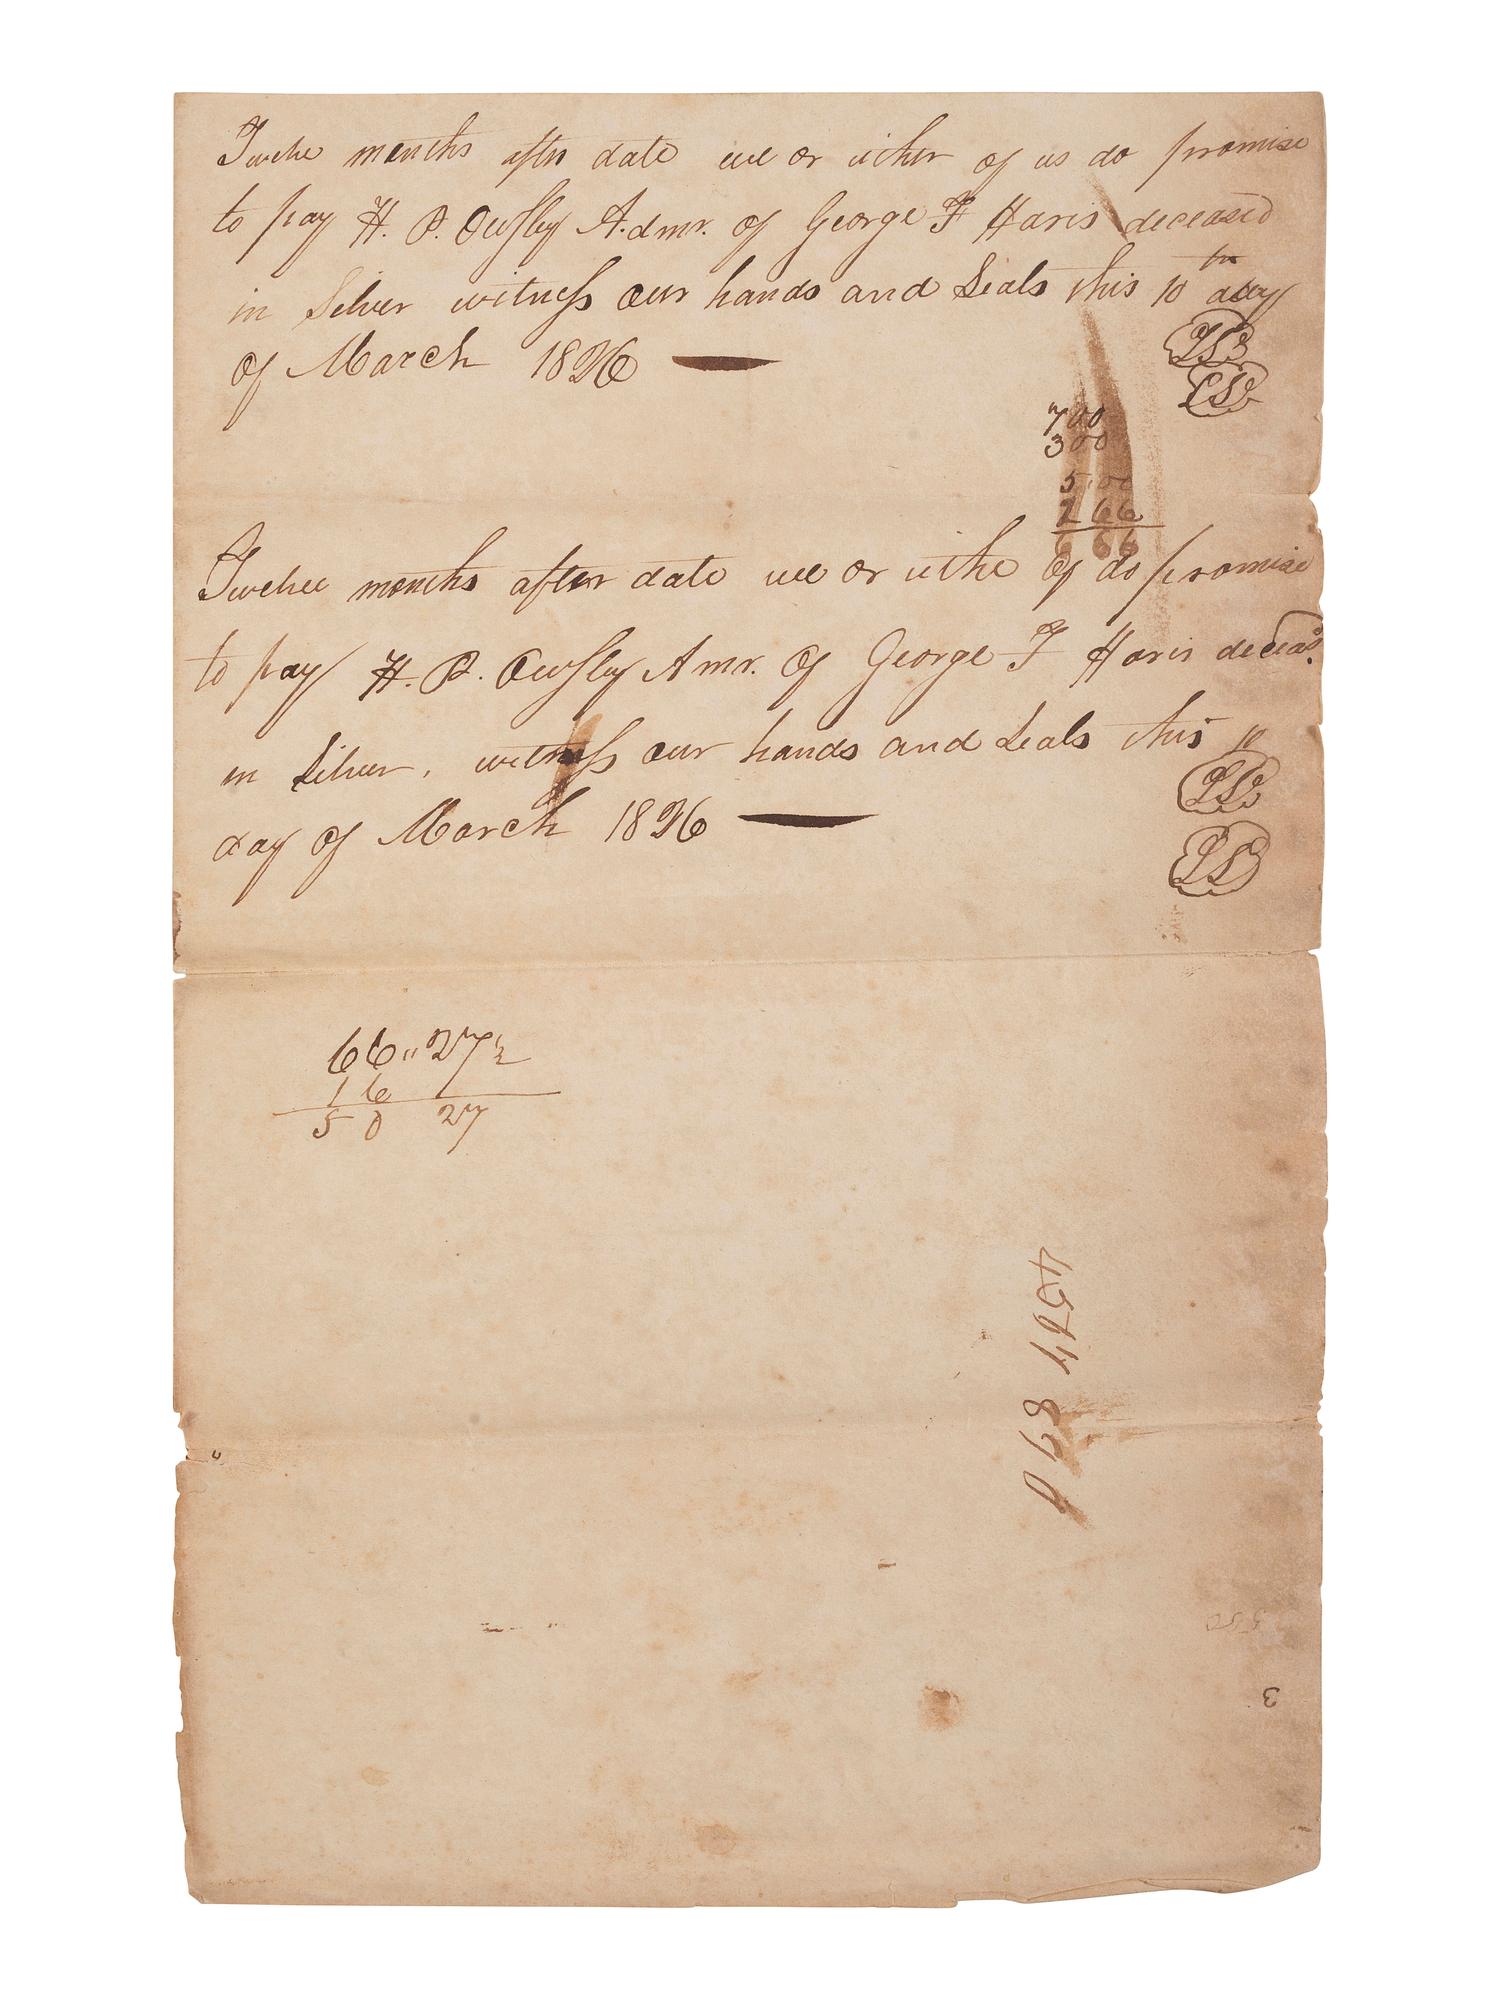 Twelve months after date we or either of us do promise
to pay H. P. Owsley Admr. of George F Haris deceased
in Silver witness our hands and Seals this 10th day
of March 1826
LS
LS
700
300
5.00
166
666
Twelve months after date we or eithe of do promise
to pay H. P. Owsley Amr. of George F Haris deceasd.
in Silver, witness our hands and Seals this 10
day of March 1826
LS
LS
66" 27½
16
50 27
550
3